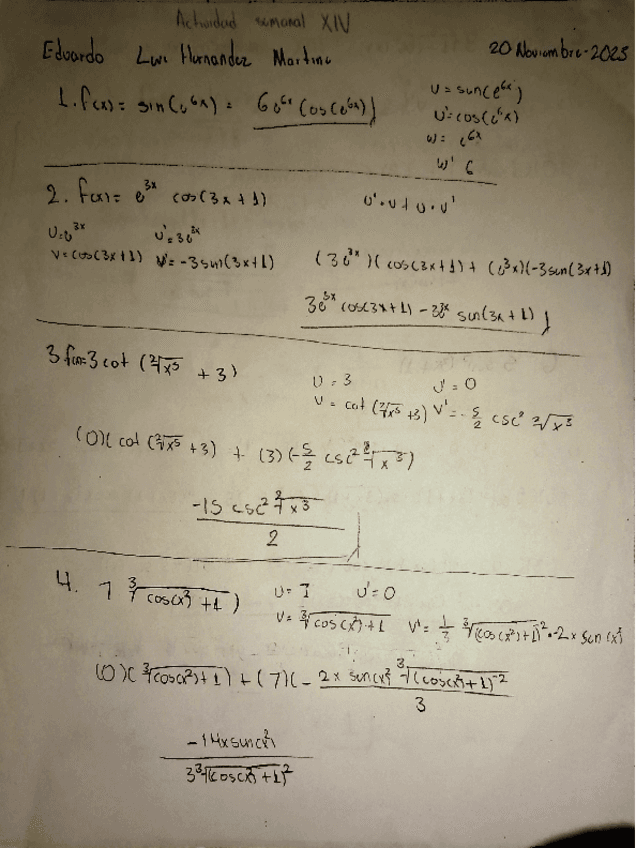 Actividad semanal XIV
Eduardo Luis Hernandez Martine 20 Noviembre-2025
1. f(x) = sin(e^6x) = 6e^6x (cos(e^6x)) u = sen(e^6x)
u' = cos(e^6x)
w = e^6x
w' 6
2. f(x) = e^3x cos(3x+1) u'·v + u·v'
u = e^3x u' = 3e^3x
v = cos(3x+1) v' = -3sen(3x+1) (3e^3x)(cos(3x+1) + (e^3x)(-3sen(3x+1)
3e^3x cos(3x+1) - 3e^3x sen(3x+1)
3 f(x)= 3 cot (²√x⁵ + 3)
u = 3 u' = 0
v = cot (²√x⁵ + 3) v' = -5/2 csc² ²√x³
(0)(cot (²√x⁵ + 3) + (3)(-5/2 csc² ²√x³)
-15 csc² ²√x³
2
4. 7 ³√cos(x²)+1 ) u = 7 u' = 0
v = ³√cos(x²)+1 v' = 1/3 ³√(cos(x²)+1)^-2 · -2x sen(x²)
(0)(³√cos(x²)+1) + (7)(- 2x sen(x²) ³√(cos(x²)+1)^-2
3
-14x sen(x²)
3 ³√(cos(x²)+1)²